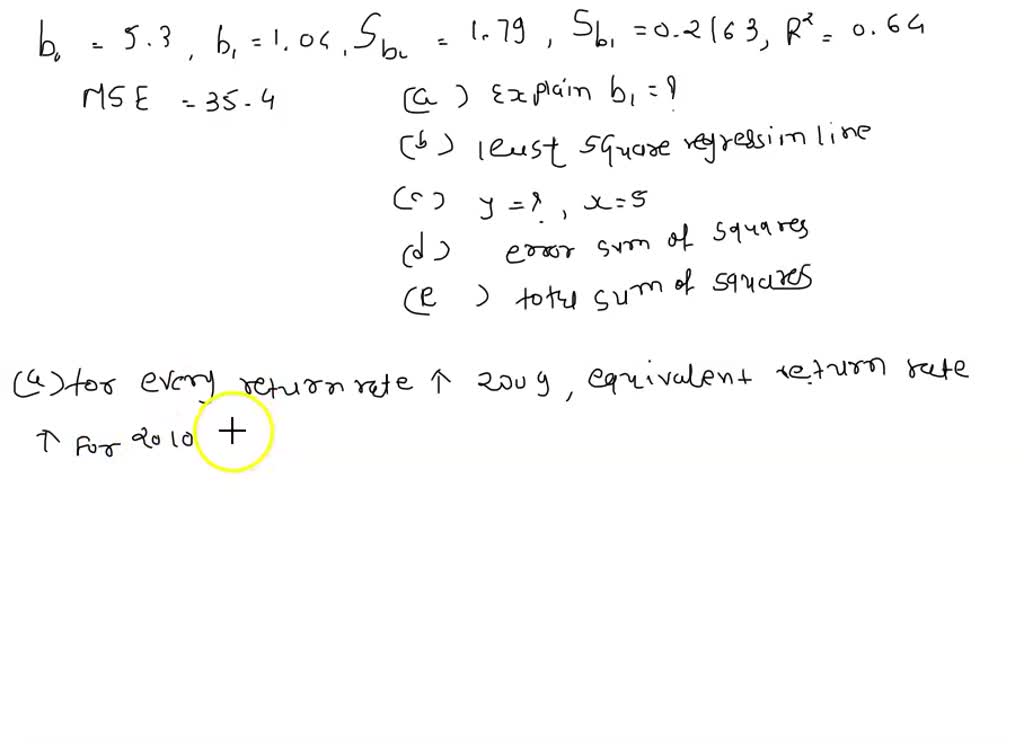 b₀ = 5.3, b₁ = 1.04, S_b₀ = 1.79, S_b₁ = 0.2163, R² = 0.64
MSE = 35.4 (a) Explain b₁ = ?
(b) least square regression line
(c) y = ?, x = 5
(d) error sum of squares
(e) total sum of squares
(a) for every return rate ↑ 2009, equivalent return rate
↑ For 2010